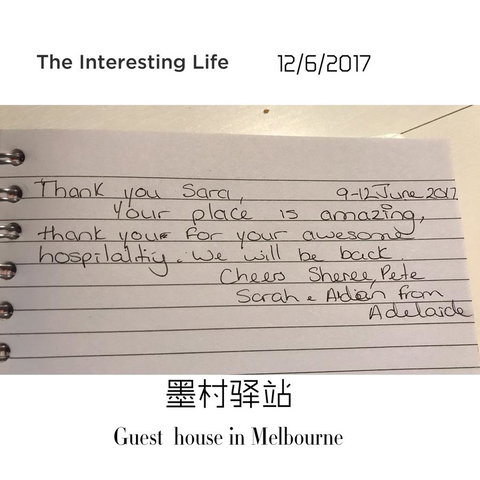 The Interesting Life 12/6/2017
Thank you Sara, 9-12 June 2017
Your place is amazing,
thank your for your awesome
hospilaltiy. We will be back.
Cheers Sheree, Pete
Sarah & from
Adelaide
墨村驿站
Guest house in Melbourne